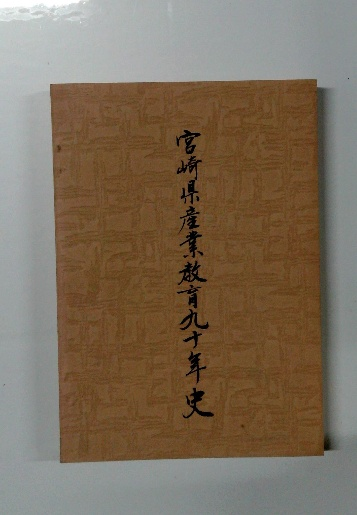 宮崎県産業教育九十年史